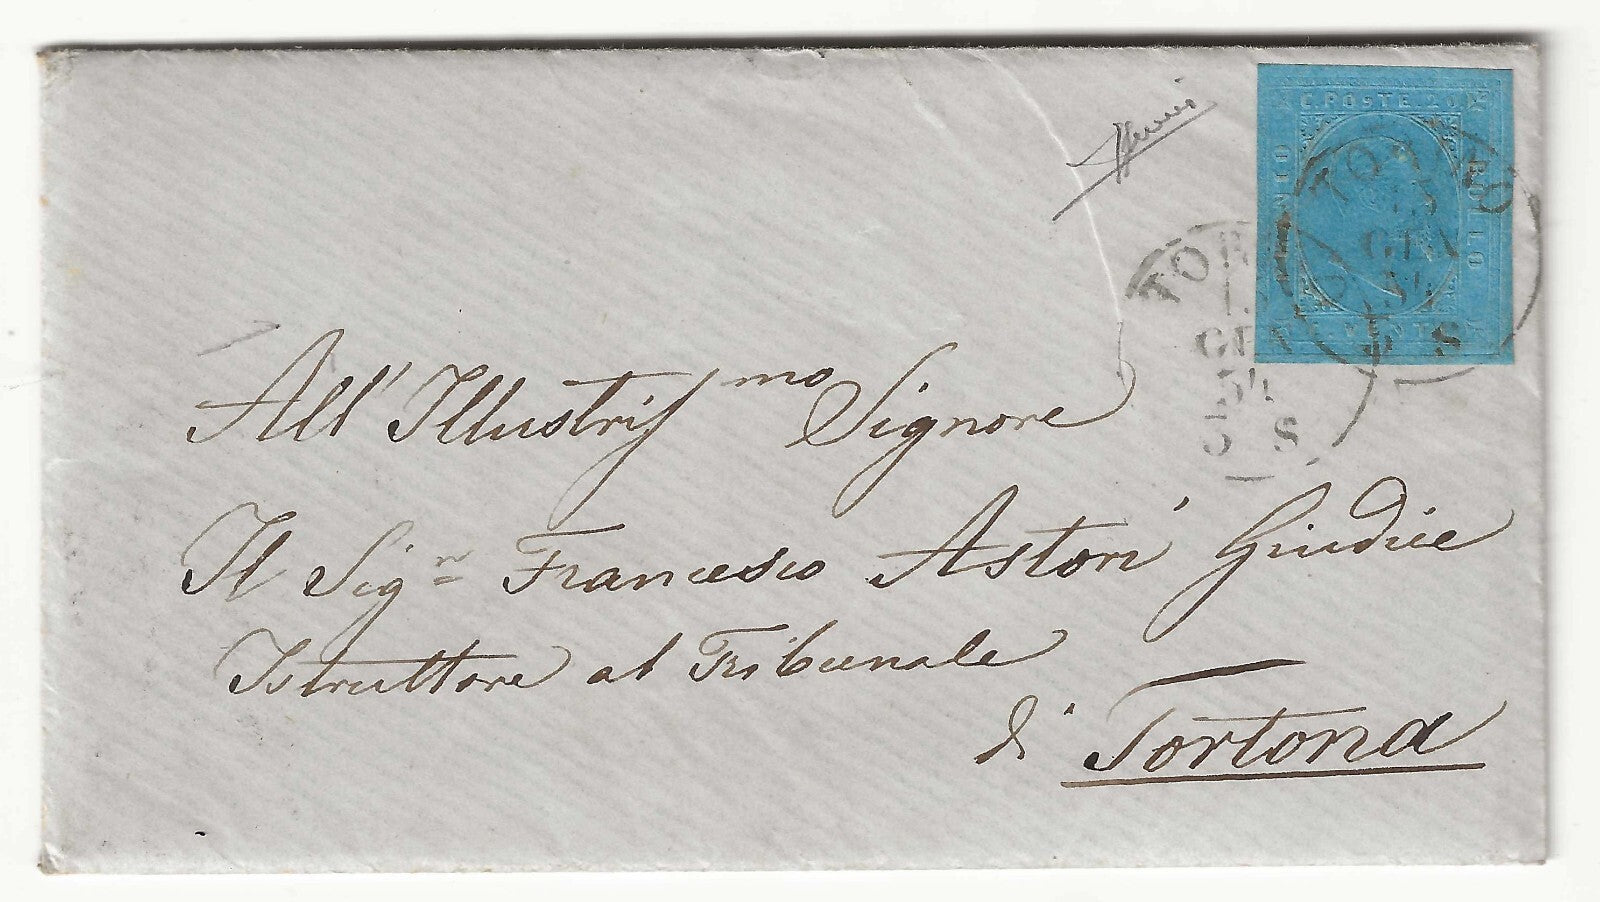 C. POSTE. 20
BOLLO
TORINO
13
GEN
54
5 S
TOR
1
GEN
54
5 S
All' Illustriss.mo Signore
Il Sig.r Francesco Astori Giudice
Istruttore al Tribunale
di Tortona